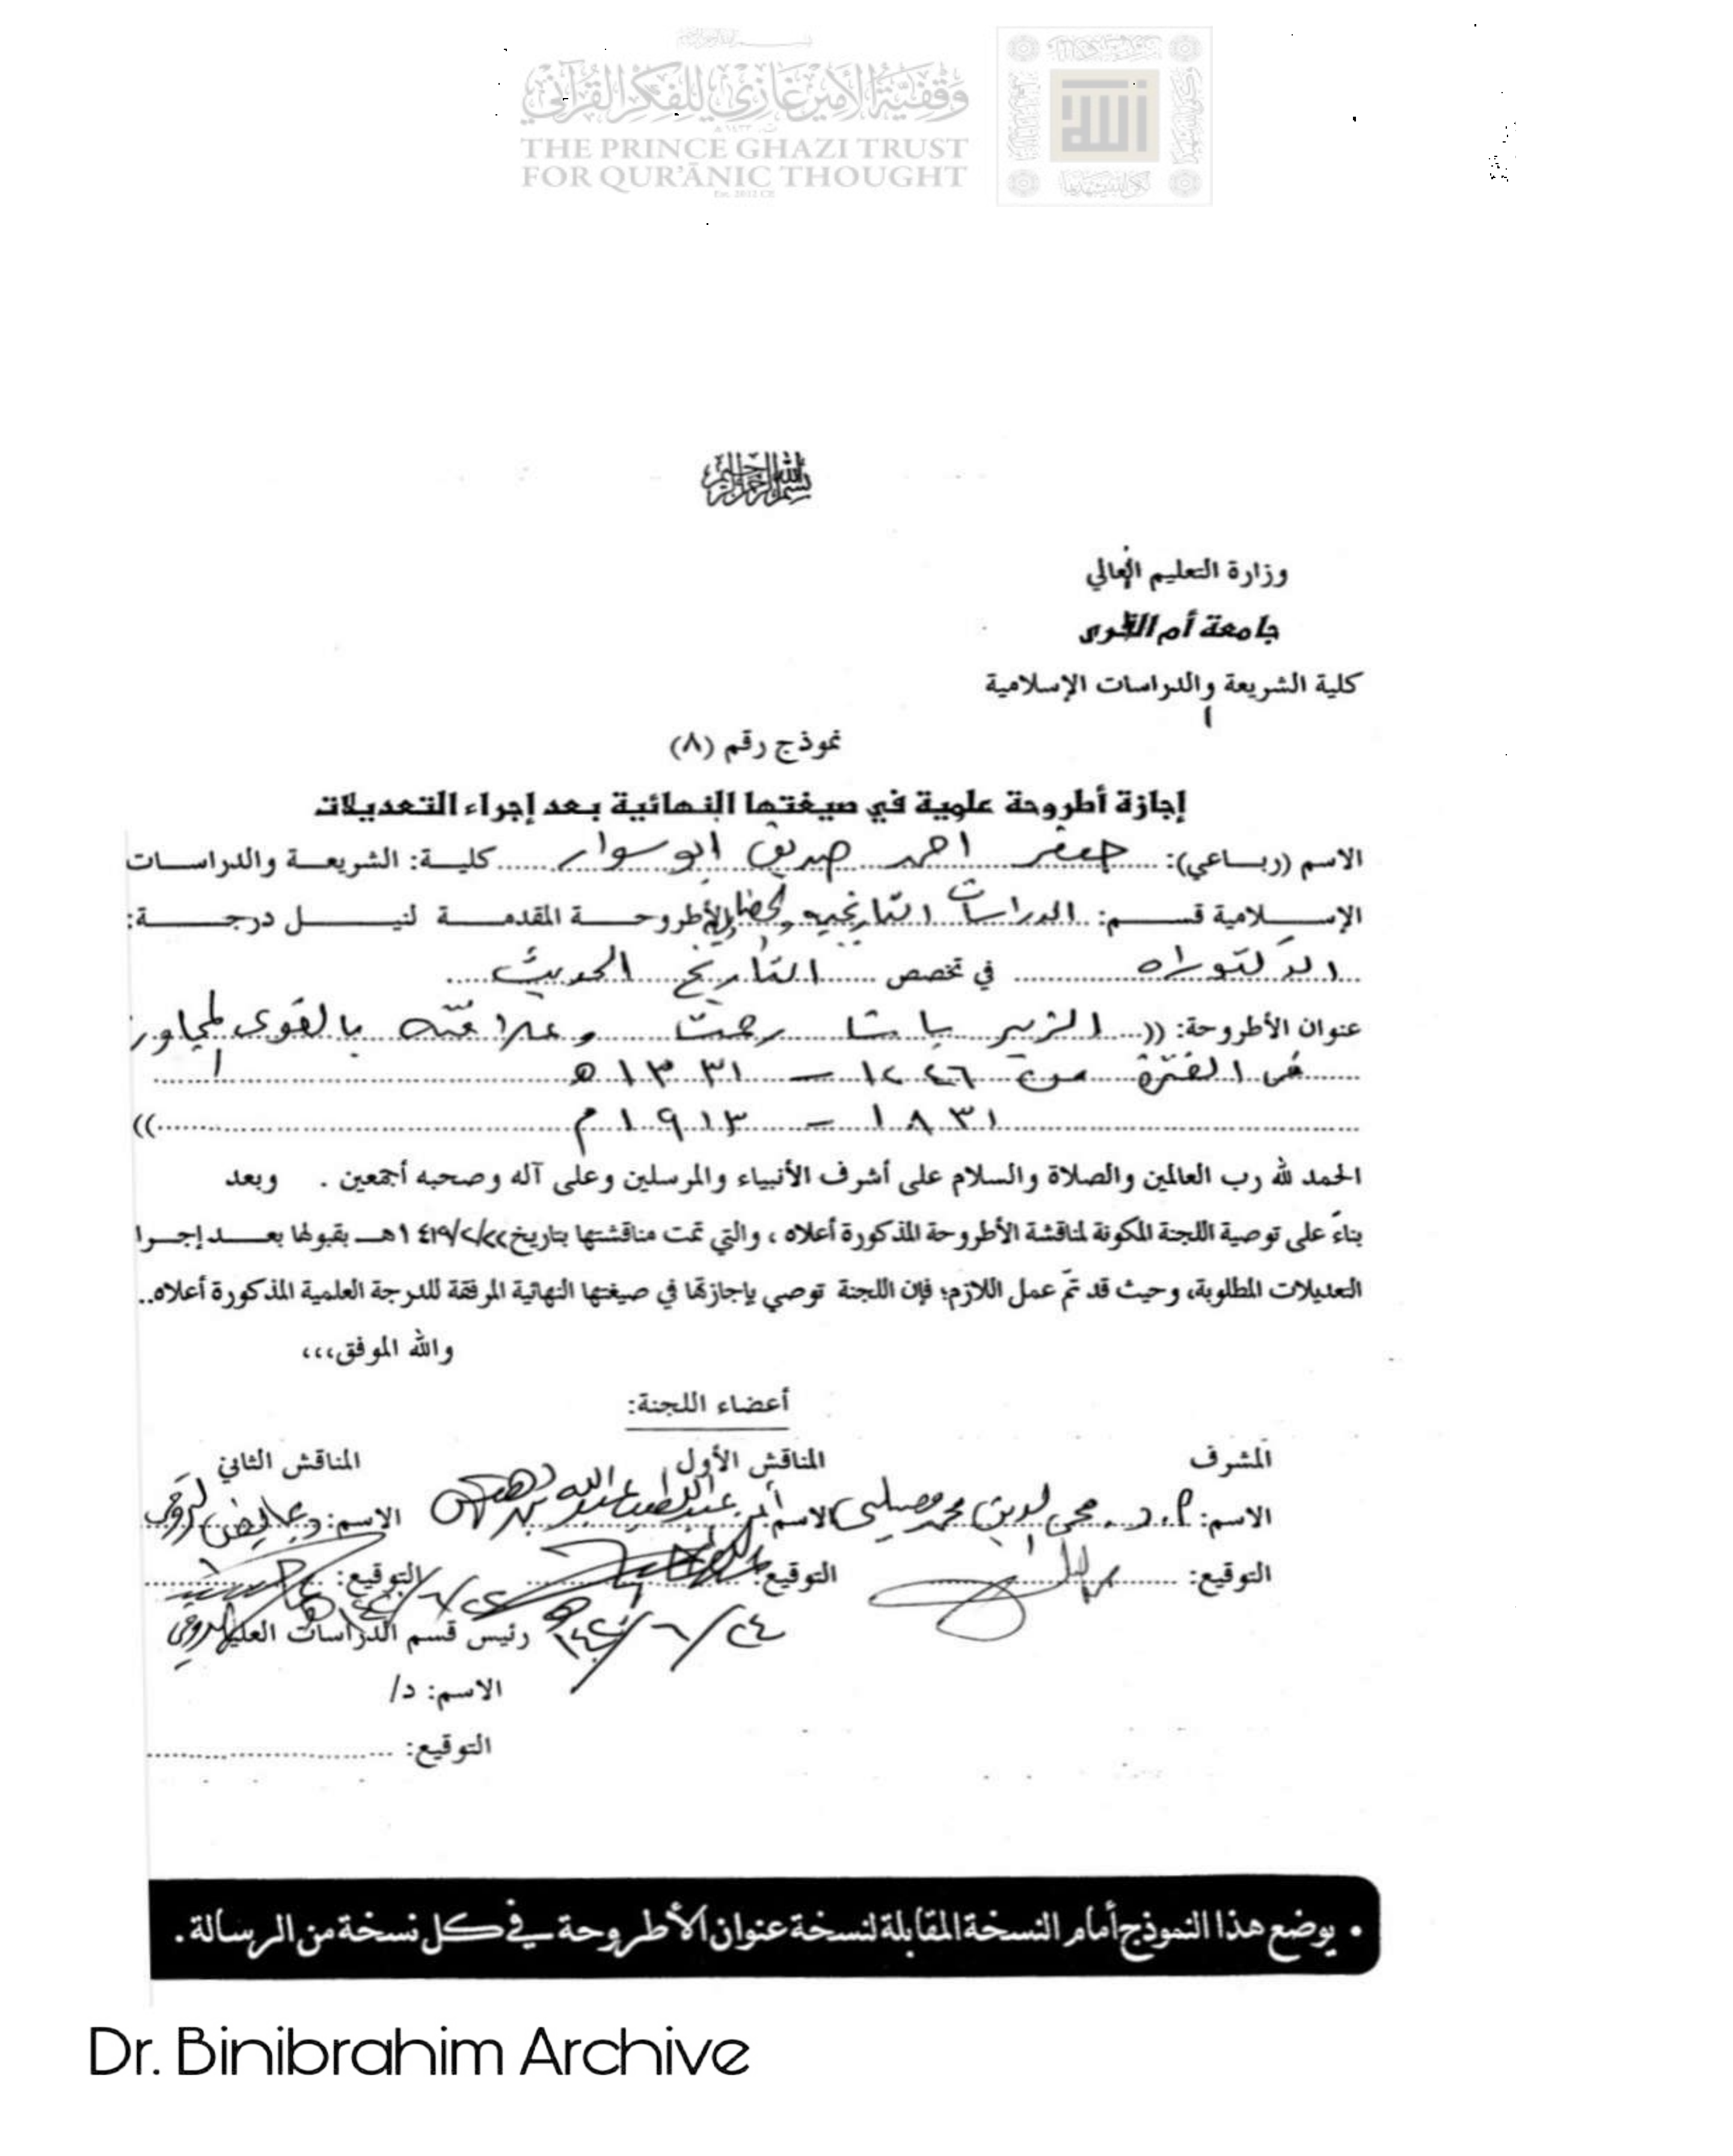 وقفية الأمير غازي للفكر القرآني
THE PRINCE GHAZI TRUST
FOR QUR'ĀNIC THOUGHT
Est. 2012 CE
بسم الله الرحمن الرحيم
وزارة التعليم العالي
جامعة أم القرى
كلية الشريعة والدراسات الإسلامية
نموذج رقم (٨)
إجازة أطروحة علمية في صيغتها النهائية بعد إجراء التعديلات
الاسم (رباعي): جعفر احمد صديق ابو سوار كلية: الشريعة والدراسات
الإسلامية قسم: الدراسات التاريخيه والحضارية الأطروحة المقدمة لنيل درجة:
الدكتوراه في تخصص التاريخ الحديث
عنوان الأطروحة: ((الزبير باشا رحمت وعلاقته بالقوى المجاورة
فى الفترة من ١٢٤٦ – ١٣٣١ه
١٨٣١ – ١٩١٣م ))
الحمد لله رب العالمين والصلاة والسلام على أشرف الأنبياء والمرسلين وعلى آله وصحبه أجمعين . وبعد
بناءً على توصية اللجنة المكونة لمناقشة الأطروحة المذكورة أعلاه ، والتي تمت مناقشتها بتاريخ ٢٢/٢/١٤١٩هـ بقبولها بعد إجرا
التعديلات المطلوبة، وحيث قد تم عمل اللازم؛ فإن اللجنة توصي بإجازتها في صيغتها النهائية المرفقة للدرجة العلمية المذكورة أعلاه..
والله الموفق،،،
أعضاء اللجنة:
المشرف المناقش الأول المناقش الثاني
الاسم: أ.د. محي الدين محمد مصيلحى الاسم: أ.د. عبداللطيف عبدالله بن دهيش الاسم: د عايض الروقي
التوقيع: التوقيع: التوقيع:
٢٤/٦/١٤٢٠ه
رئيس قسم الدراسات العليا
الاسم: د/
التوقيع:
• يوضع هذا النموذج أمام النسخة المقابلة لنسخة عنوان الأطروحة في كل نسخة من الرسالة .
Dr. Binibrahim Archive